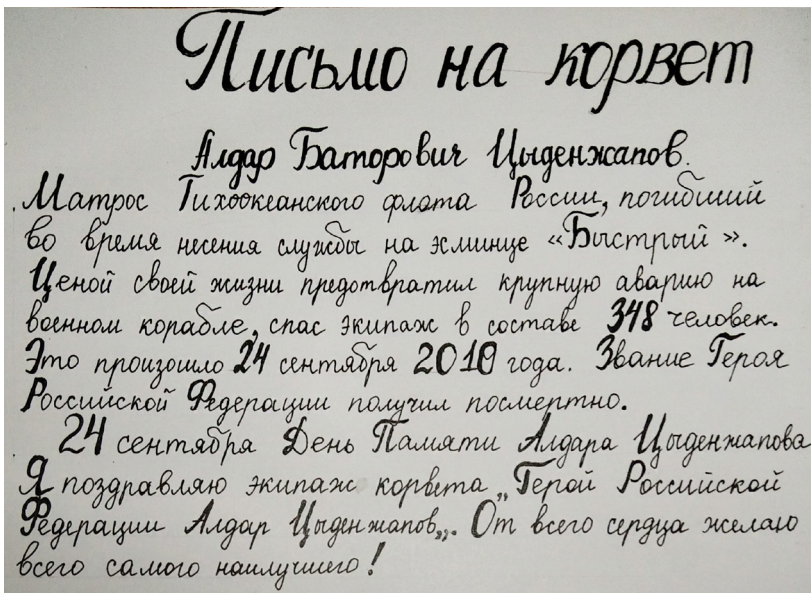 Письмо на корвет
Алдар Баторович Цыденжапов.
Матрос Тихоокеанского флота России, погибший
во время несения службы на эсминце «Быстрый».
Ценой своей жизни предотвратил крупную аварию на
военном корабле, спас экипаж в составе 348 человек.
Это произошло 24 сентября 2010 года. Звание Героя
Российской Федерации получил посмертно.
24 сентября День Памяти Алдара Цыденжапова
Я поздравляю экипаж корвета „Герой Российской
Федерации Алдар Цыденжапов„. От всего сердца желаю
всего самого наилучшего!